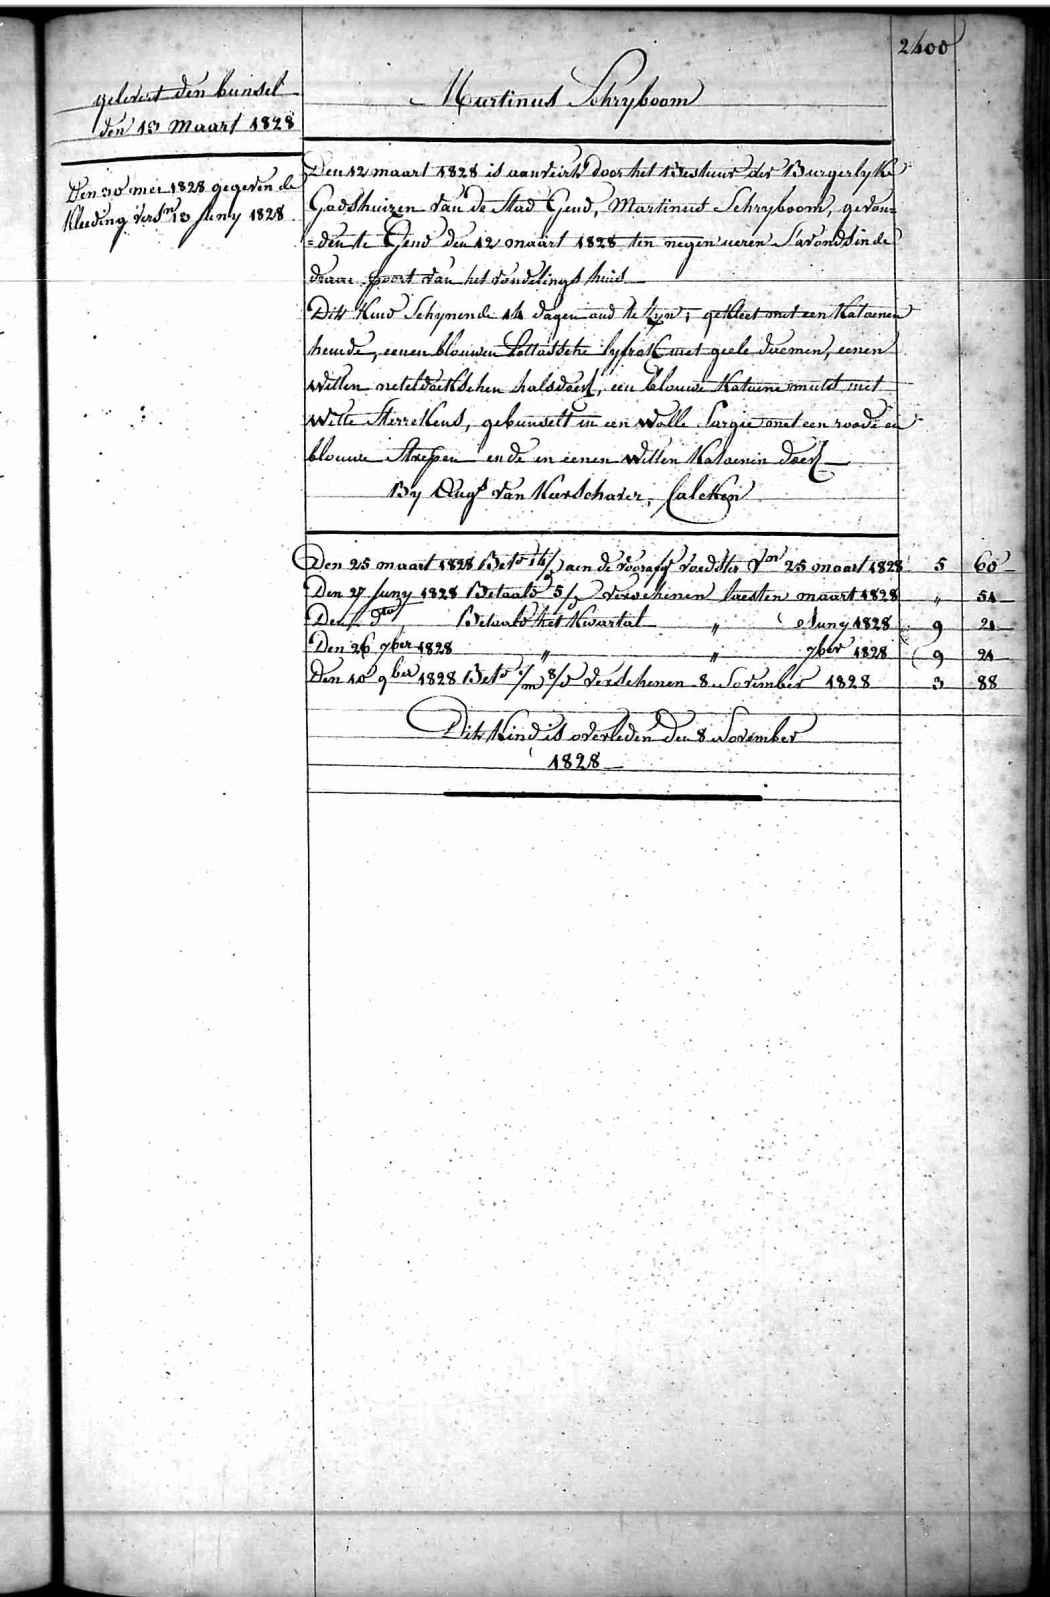 2400
gelevert den bunsel
den 13 maart 1828
Den 30 mei 1828 gegeven de
Kleeding versn 13 Juny 1828
Martinus Schryboom
Den 12 maart 1828 is aanveirt door het Bestuur der Burgerlyke
Godshuizen van de Stad Gend, Martinus Schryboom, gevon=
=den te Gend den 12 maart 1828 ten negen ueren S'avonds in de
draai poort van het vondelings huis
Dit Kind Schynende 14 dagen oud te Zyn, gekleet met een Katoenen
hemde, eenen blouwen lyfrok met geele bloemen, eenen
witten neteldoekschen halsdoek, een blouwe Katoene muts met
witte Sterrekens, gebunselt in een Wolle Sargie met een roode en
blouwe Strepen ende in eenen Witten Katoenen doek
By Augs van Keerschaver, Calcken
Den 25 maart 1828 Betd aen de voorafg voedster Vn 25 maart 1828 5 60
Den 27 Juny 1828 Betaald 5/ verschenen laesten maart 1828 " 54
Den dto Betaald het Kwartal " Juny 1828 9 21
Den 26 7ber 1828 " " 7ber 1828 9 21
Den 10 9ber 1828 Betd 1/m 8/d verschenen 8 November 1828 3 88
Dit Kind is overleden den 8 November
1828